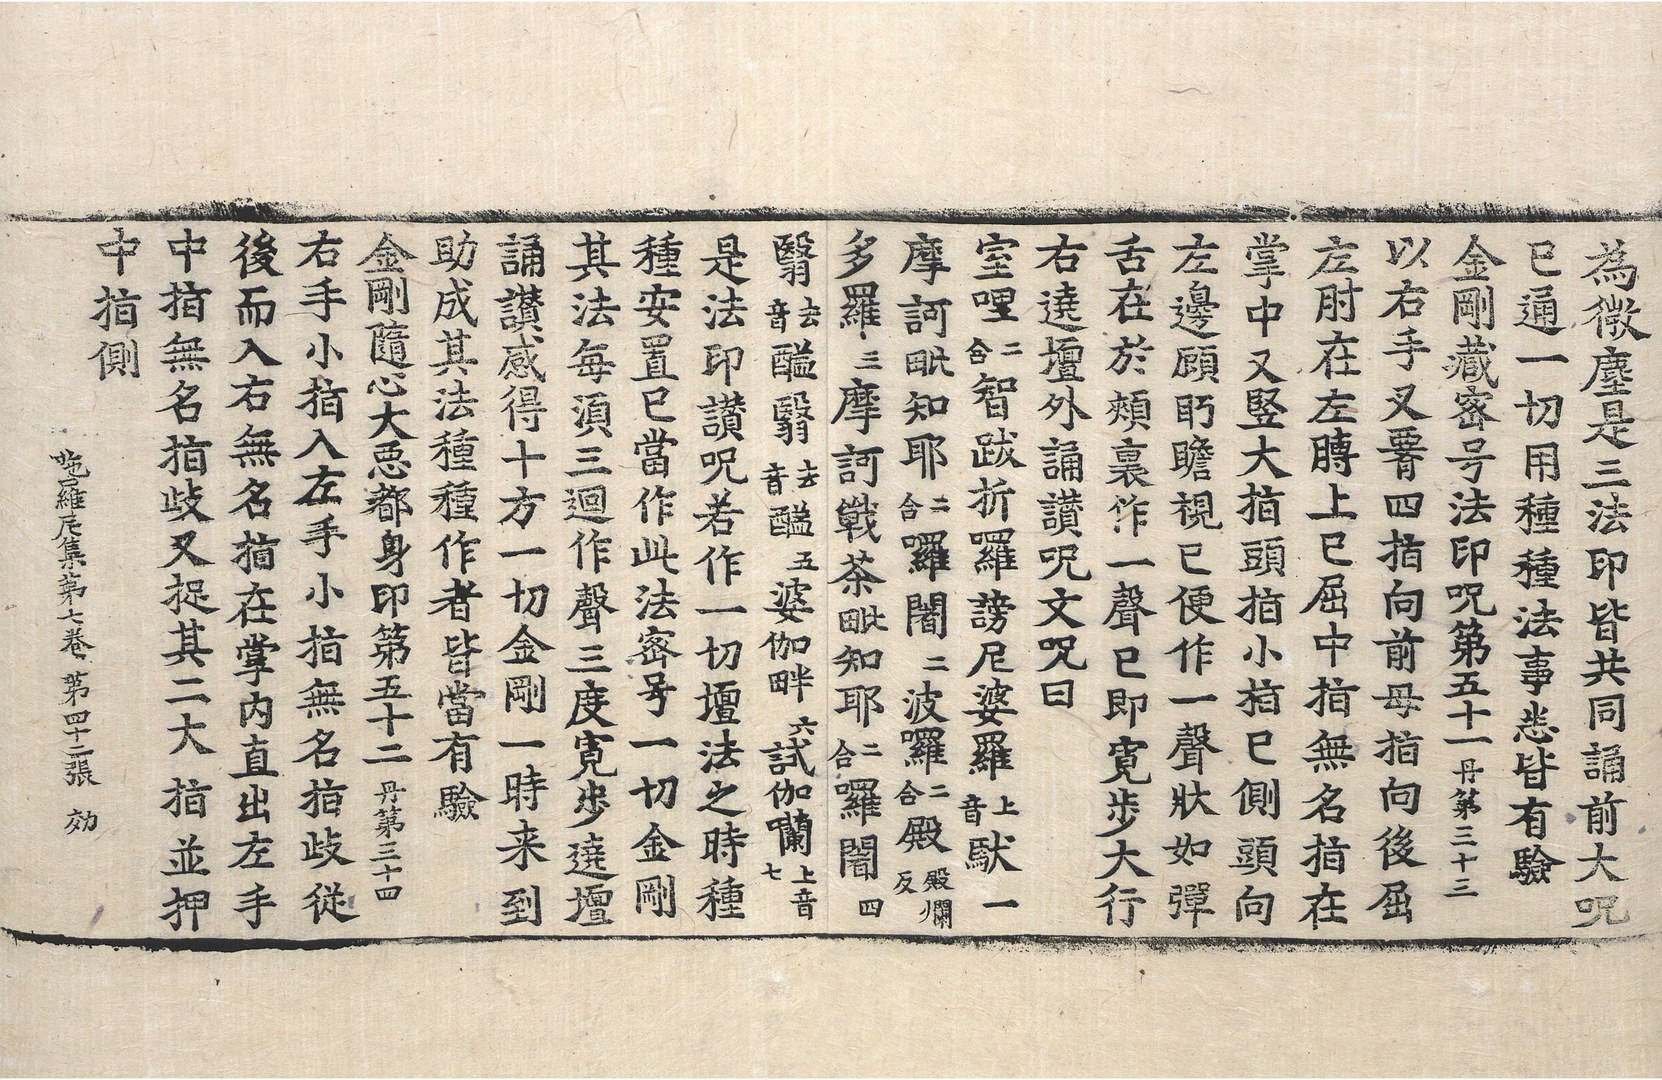 為微塵是三法印皆共同誦前大呪
已通一切用種種法事悉皆有驗
金剛藏密号法印呪第五十一丹第三十三
以右手叉署四指向前母指向後屈
左肘在左䏶上已屈中指無名指在
掌中又竪大指頭指小指已側頭向
左邊顧眄瞻視已便作一聲狀如彈
舌在於頰裏作一聲已即寬步大行
右遶壇外誦讃呪文呪曰
室哩二合智跋折囉謗尼婆羅上音馱一
摩訶毗知耶二合囉闍二波囉二合殿殿爛反
多羅三摩訶戰荼毗知耶二合囉闍四
翳去音醯翳去音醯五婆伽畔六試伽囒上音七
是法印讃呪若作一切壇法之時種
種安置已當作此法密号一切金剛
其法每須三迴作聲三度寬步遶壇
誦讃感得十方一切金剛一時来到
助成其法種種作者皆當有驗
金剛隨心大惡都身印第五十二丹第三十四
右手小指入左手小指無名指歧從
後而入右無名指在掌内直出左手
中指無名指歧叉捉其二大指並押
中指側
陁羅尼集第七卷 第四十二張 効